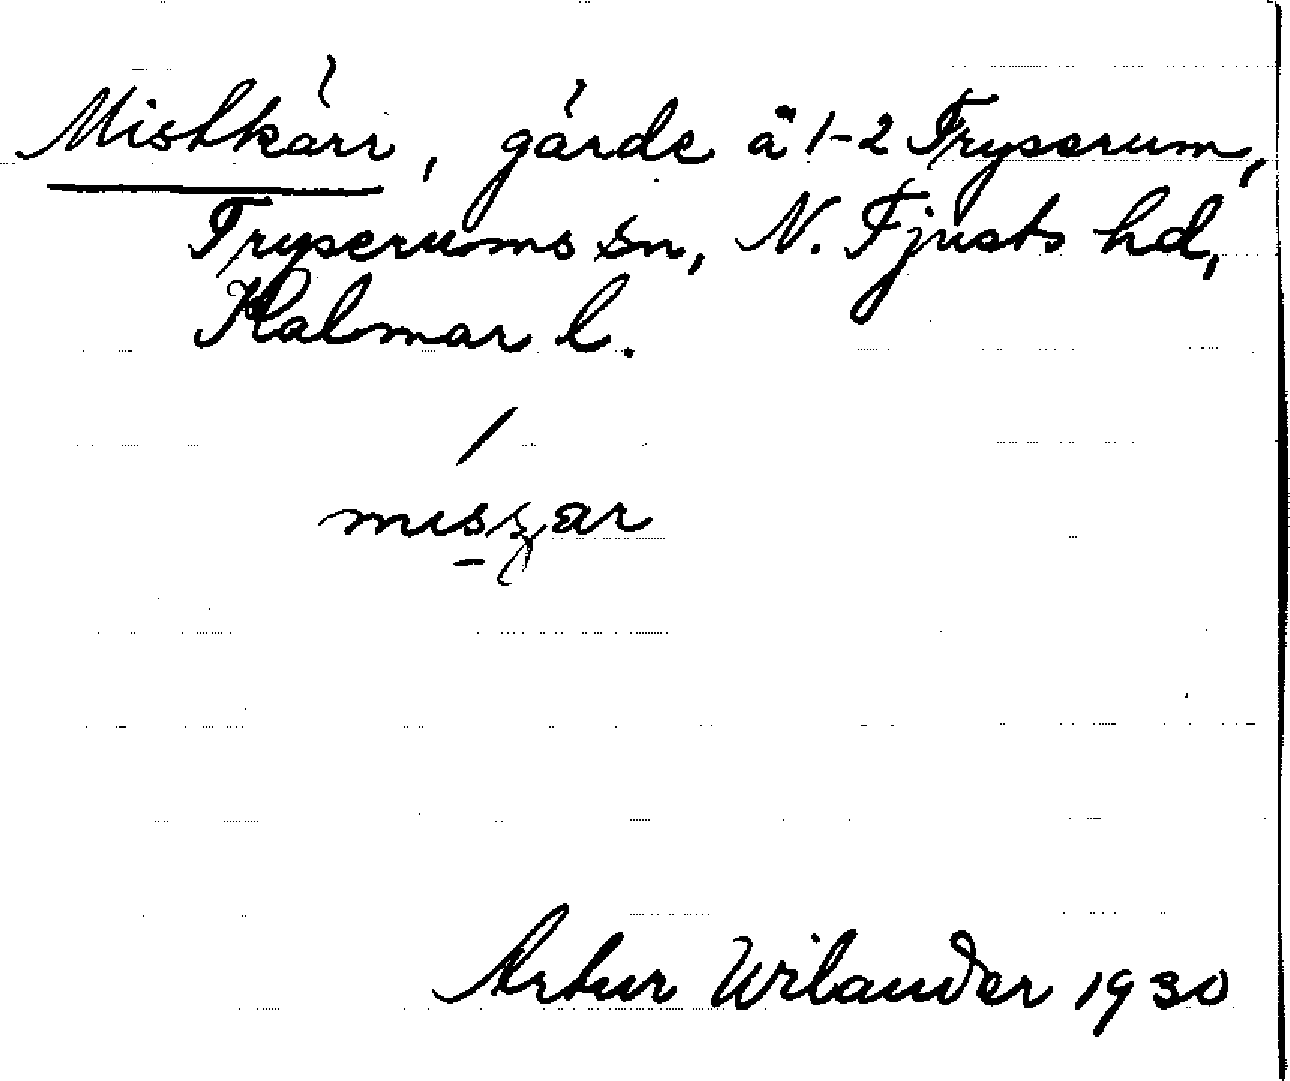 Mistkärr, gärde ä 1-2 Fryserum,
Fryserums sn, N. Tjusts hd,
Kalmar l.
Artur Wilander 1930